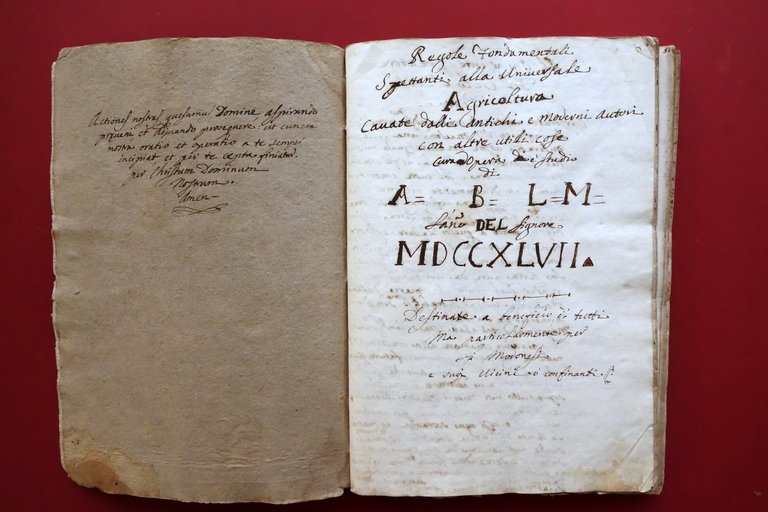 Actiones nostras quesumus Domine aspirando
preveni et adjuvando prosequere: ut cuncta
nostra oratio et operatio a te semper
incipiat et per te cepta finiatur.
per Christum Dominum
Nostrum.
Amen
Regole Fondamentali
Spettanti alla Universale
Agricoltura
Cavate dalli Antichi e Moderni Autori
con altre utili cose
Opera e studio
di
A= B= L=M=
L'anno DEL Signore
MDCCXLVII.
Destinate a beneficio di tutti
Ma particolarmente per
li Modonesi
e suoi Vicini o confinanti.